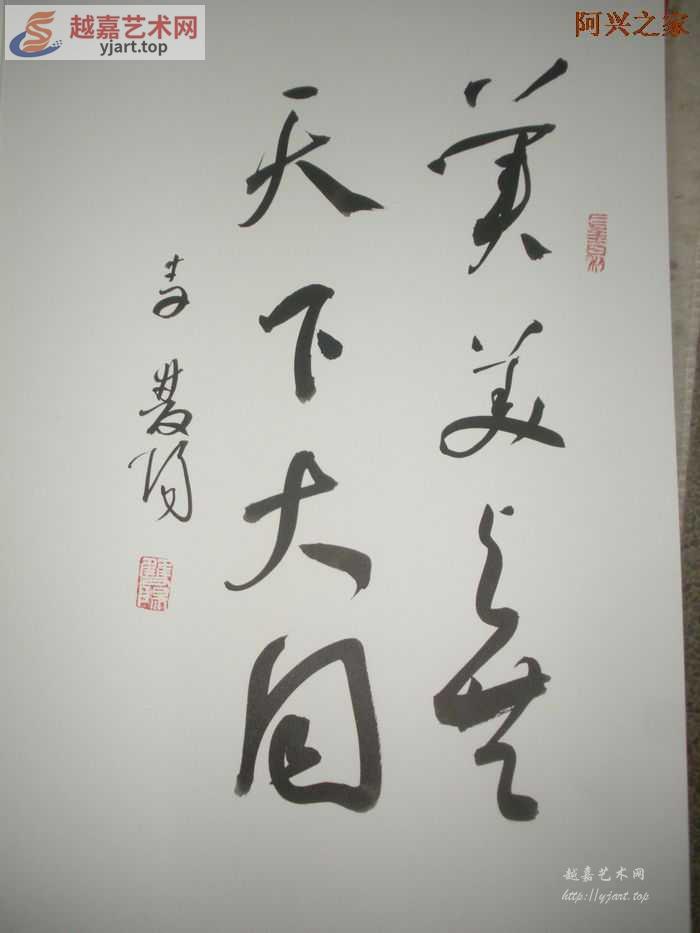 越嘉艺术网
yjart.top
阿兴之家
美美与共
天下大同
李雙陽
越嘉艺术网
http://yjart.top